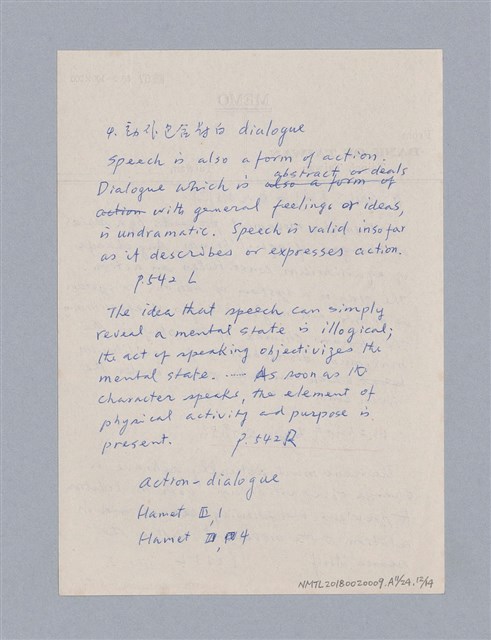 4. 動作包含對白 dialogue
Speech is also a form of action.
abstract or deals
Dialogue which is also a form of
action with general feelings or ideas,
is undramatic. Speech is valid insofar
as it describes or expresses action.
p.542 L
The idea that speech can simply
reveal a mental state is illogical;
the act of speaking objectivizes the
mental state. ...... As soon as the
character speaks, the element of
physical activity and purpose is
present. p.542R
action-dialogue
Hamet III, 1
Hamet III, 4
NMTL20180020009.A